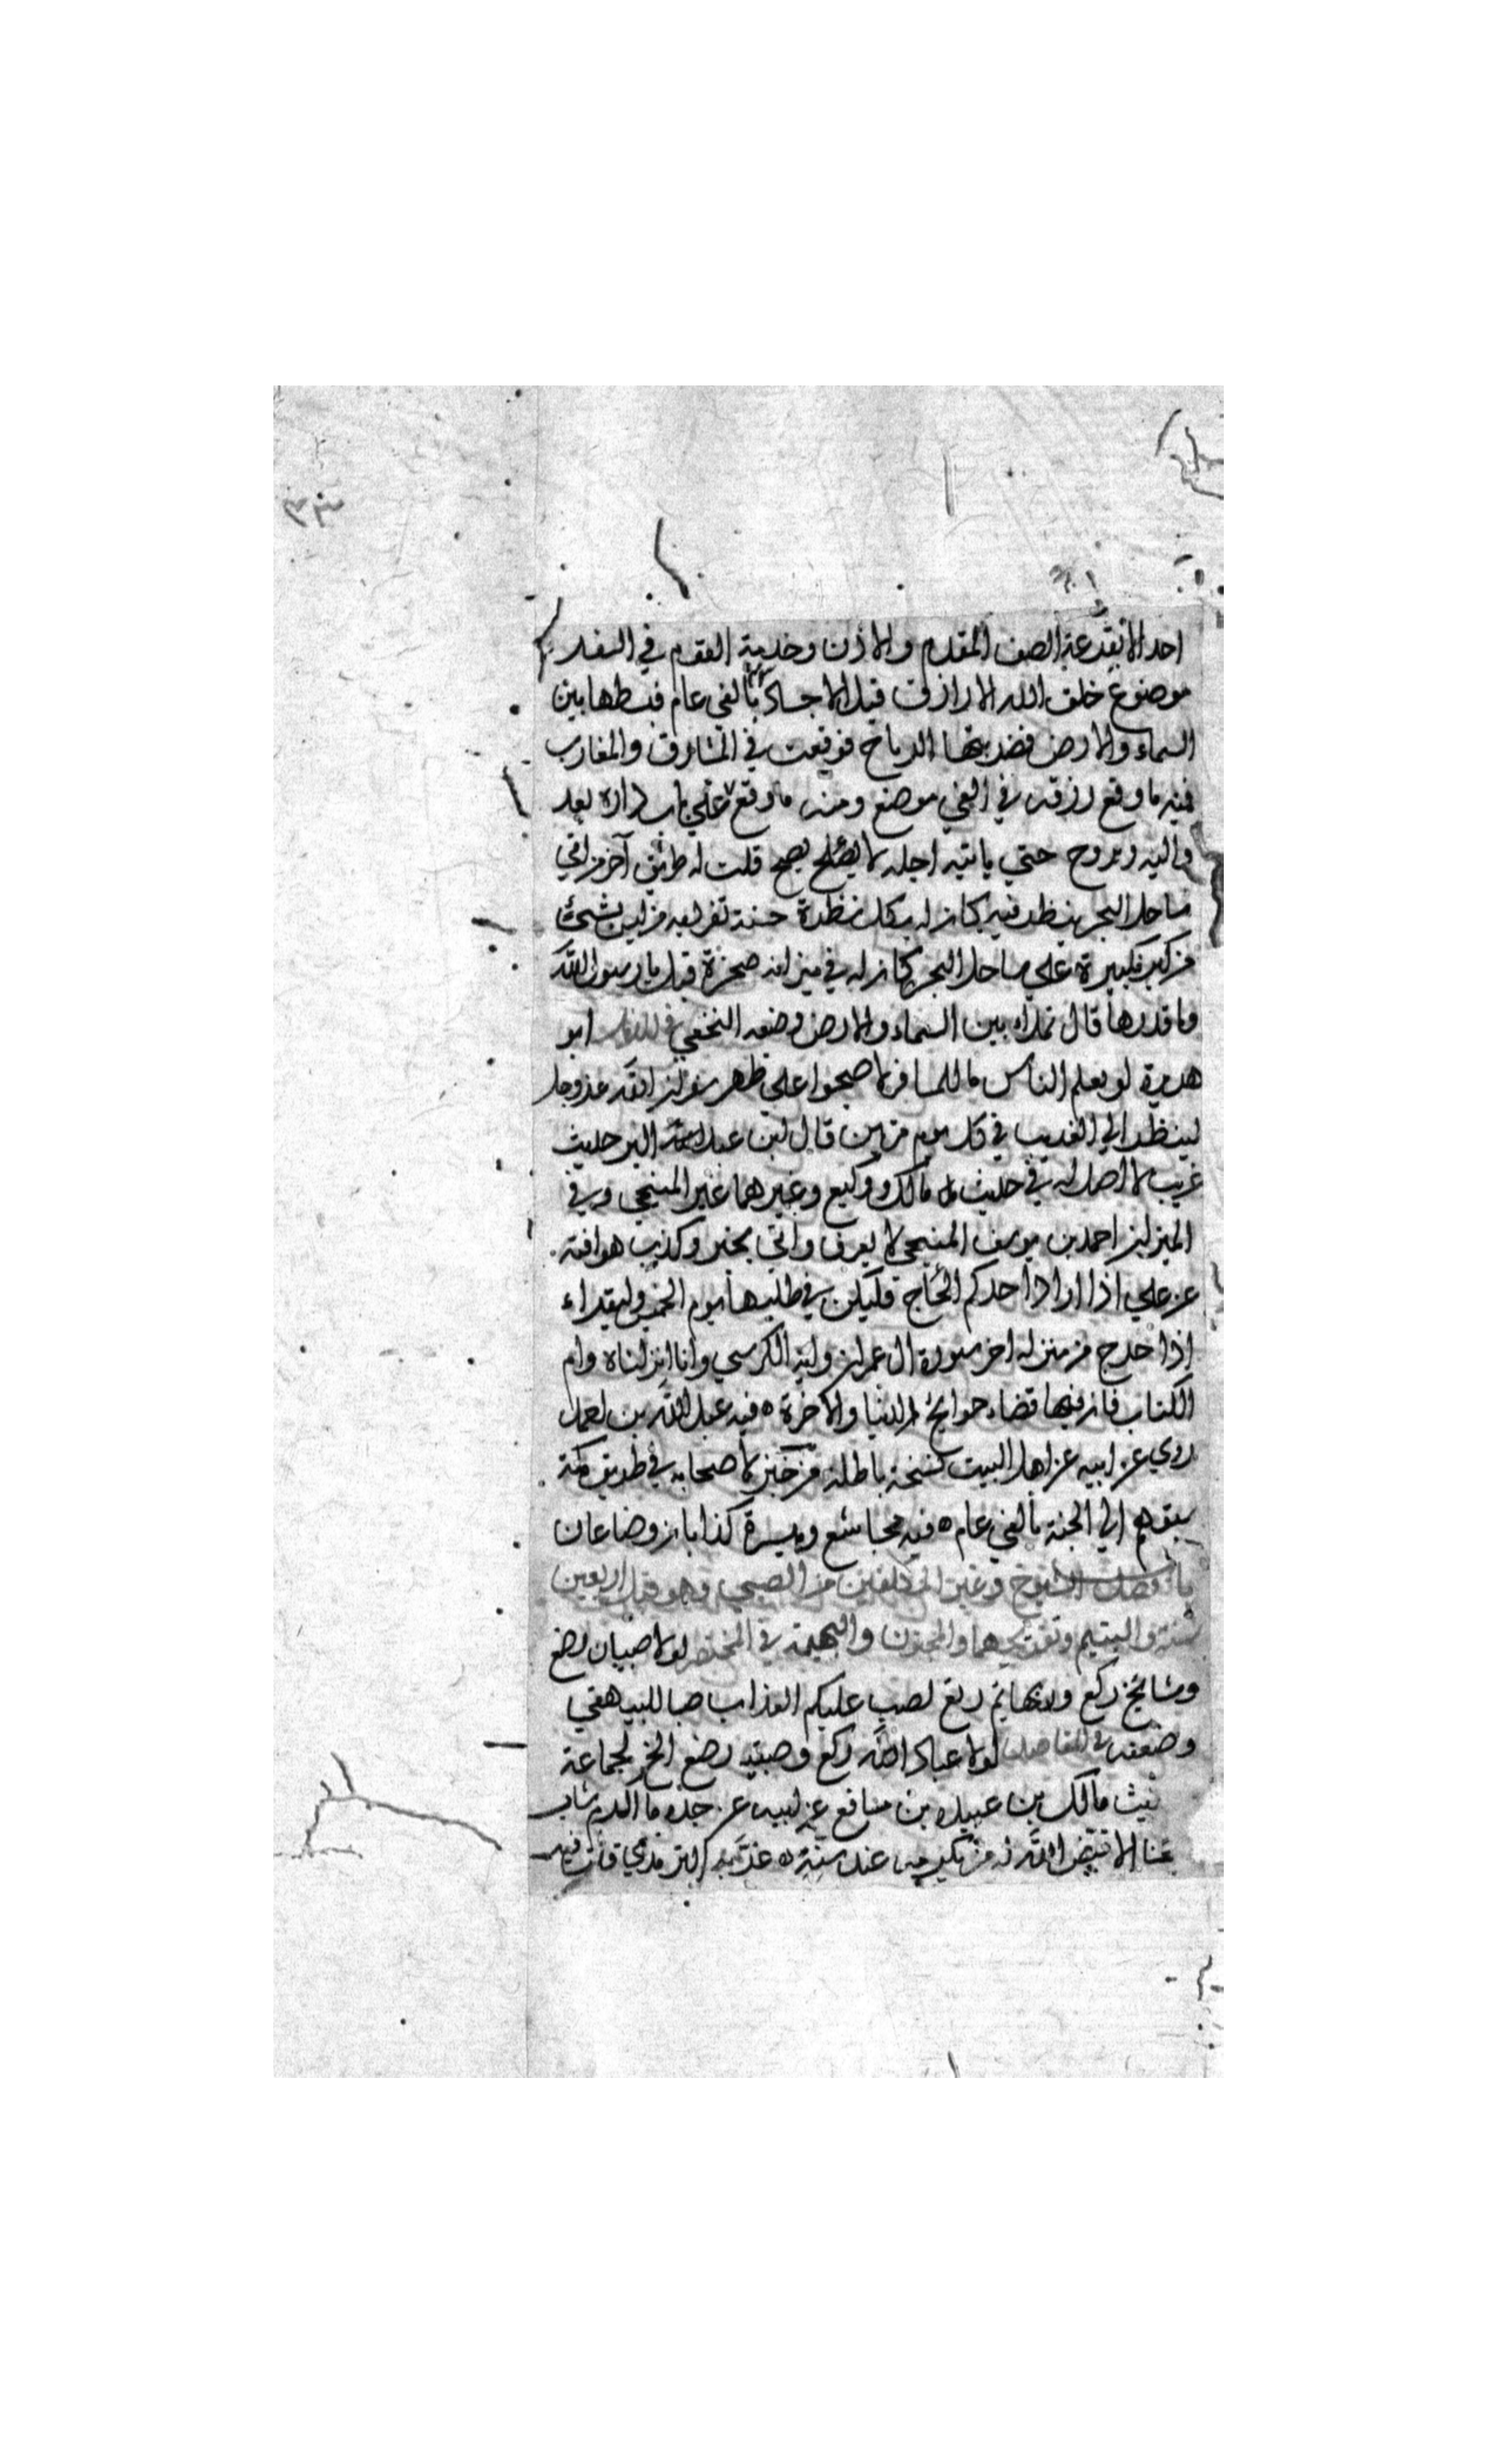 احد الا بقرعة الصف المقدم والاذان وخدمة القوم في السفر
موضوع خلق الله الارزاق قبل الاجساد بالفي عام فبسطها بين
السماء والارض فضربتها الرياح فوقعت في المشارق والمغارب
فمنه ما وقع رزقه في الفي موضع ومنه ما وقع علي باب داره يغد
واليه ويروح حتي ياتيه اجله لا يصح قلت له طريق آخر من اتي
ساحل البحر ينظر فيه كان له بكل نظرة حسنة تفرد به من ليس بشئ
من كبر تكبيرة علي ساحل البحر كان له في ميزانه صخرة قيل يا رسول الله
وما قدرها قال تملاه بين السماء والارض وضعه النخعي في ابو
هريرة لو يعلم الناس ما للمسافر لاصبحوا علي ظهر سفر ان الله عز وجل
لينظر الي الغريب في كل يوم مرتين قال ابن عبد البر حديث
غريب لا اصل له في حديث مالك ووكيع وغيرهما غير المنبجي وفي
الميزان احمد بن يوسف المنبجي لا يعرف واتي بخبر وكذب هو آفته
عن علي اذا اراد احدكم الحاج فليكن في طلبها يوم الخميس وليقراء
اذا خرج من منزله اخر سورة ال عمران واية الكرسي وانا انزلناه وام
الكتاب فان فيها قضاء حوائج الدنيا والاخرة ه فيه عبد الله بن احمد
روي عن ابيه عن اهل البيت نسخة باطلة من خبز لاصحابه في طريق مكة
سبقهم الي الجنة بالفي عام ه فيه مجاشع وميسرة كذابان وضاعان
باب فضل الشيوخ وغير المكلفين من الصبي وهو قبل اربعين
سنة واليتيم وتفريحهما والمجنون والبهيمة في المختصر لولا صبيان رضع
ومشائخ ركع وبهائم رتع لصب عليكم العذاب صبا للبيهقي
وضعفه في المقاصد لولا عباد الله ركع وصبية رضع الخ لجماعة
حديث مالك بن عبيدة بن مسافع عن ابيه عن جده ما اكرم شاب
شيخا الا قيض الله له من يكرمه عند سنه ه غربه الترمذي قلت فيه